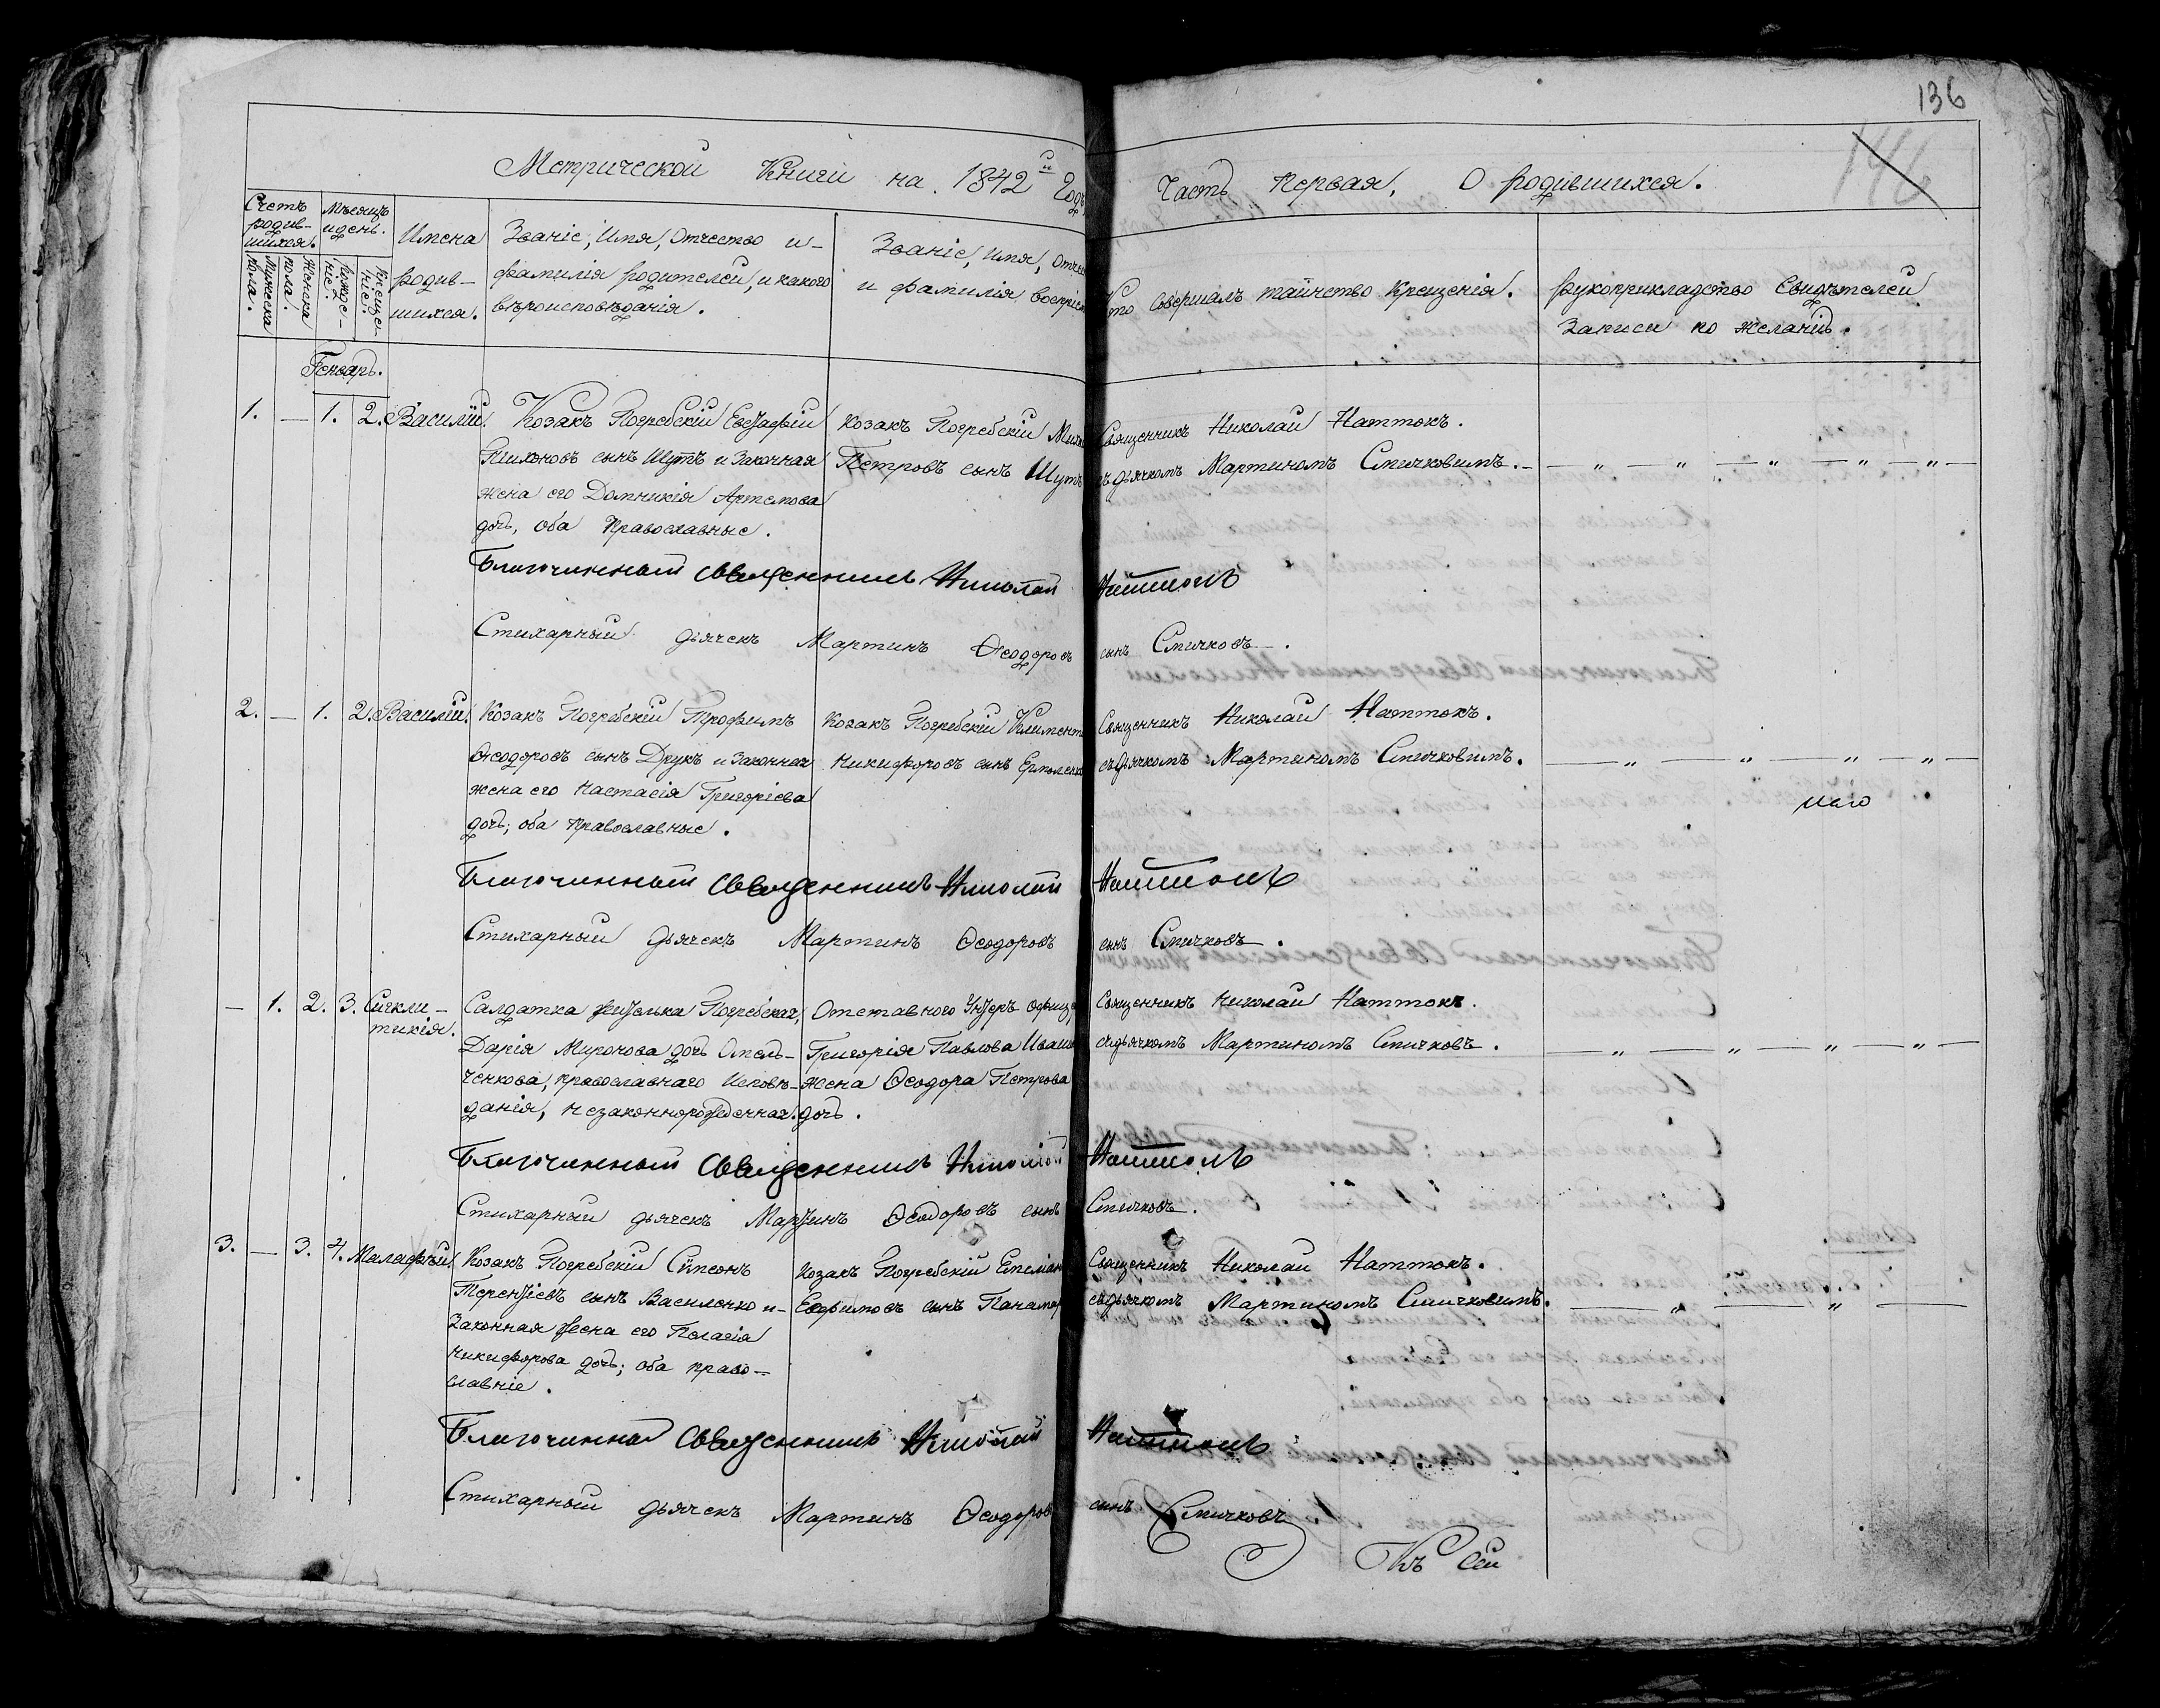 136
146
Метрической Книги на 1842й Годъ, Часть Первая, О родившихся.
Счетъ родив-шихся.
Мужеска пола.
Женска пола.
Мѣсяцъ и день.
рожде-ніе.
Креще-ніе.
Имена
родив-
шихся.
Званіе, Имя, Отчество и-
фамилія родителей, и какого
вѣроисповѣданія.
Званіе, Имя, Отчес
и фамилія воспріем
Кто совершалъ таинство Крещенія.
Рукоприкладство Свидѣтелей
Записи по желанію.
Генварь.
1. — 1. 2. Василій.
Козакъ Погребскій Евстафій
Тихоновъ сынъ Шутъ и Законная
жена его Домникія Артемова
дочь, оба Православные.
Козакъ Погребскій Миха
Петровъ сынъ Шутъ
Священникъ Николай Наттокъ.
съ дьячкомъ Мартиномъ Спичковимъ.
Благочинный Священникъ Николай Наттокъ
Стихарный дьячекъ Мартинъ Ѳеодоровъ сынъ Спичковъ.
2. — 1. 2. Василій.
Козакъ Погребскій Трофимъ
Ѳеодоровъ сынъ Друкъ и Законная
жена его Настасія Григоріева
дочь; оба православные.
Козакъ Погребскій Климент
Никифоровъ сынъ Ермоленко
Священникъ Николай Наттокъ.
съ дьячкомъ Мартиномъ Спичковимъ.
Благочинный Священникъ Николай Наттокъ
Стихарный дьячекъ Мартинъ Ѳеодоровъ сынъ Спичковъ.
— 1. 2. 3. Сигкли-
тикія.
Салдатка жителька Погребская,
Дарія Миронова дочь Омель-
ченкова, православнаго Исповѣ-
данія, незаконнорожденная.
Отставного Унтеръ офице
Григорія Павлова Иваш
жена Ѳеодора Петрова
дочь.
Священникъ Николай Наттокъ.
съ дьячкомъ Мартиномъ Спичковъ.
Благочинный Священникъ Николай Наттокъ
Стихарный дьячекъ Мартинъ Ѳеодоровъ сынъ Спичковъ.
3. — 3. 4. Малафѣй.
Козакъ Погребскій Сѵмеонъ
Терентіевъ сынъ Василенко и-
Законная жена его Пелагія
Никифорова дочь; оба право-
славніе.
Козакъ Погребскій Емеліан
Евфимовъ сынъ Панамар
Священникъ Николай Наттокъ.
съ дьячкомъ Мартиномъ Спичковимъ.
Благочинный Священникъ Николай Наттокъ
Стихарный дьячекъ Мартинъ Ѳеодоровъ сынъ Спичковъ
Къ сей